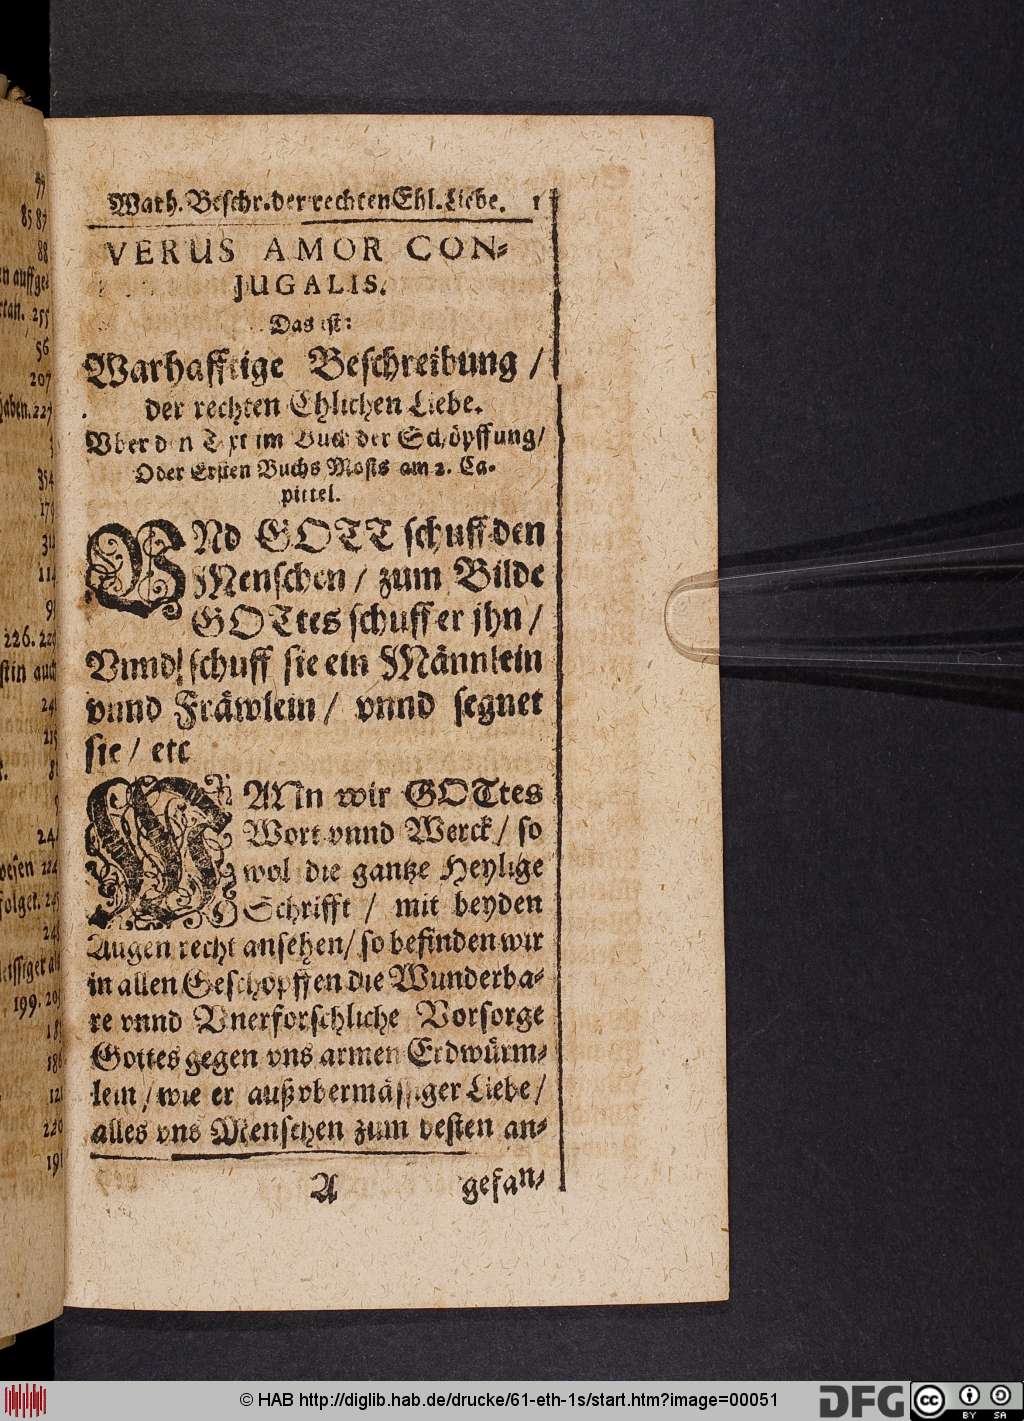 Wath. Beschr. der rechten Ehl. Liebe. 1
VERUS AMOR CON-
JUGALIS.
Das ist:
Warhafftige Beschreibung /
der rechten Ehlichen Liebe.
Vber den Text im Buch der Schöpffung/
Oder Ersten Buchs Mosis am 2. Ca-
pittel.
VNd GOTT schuff den
Menschen / zum Bilde
GOTtes schuff er jhn /
Vnnd schuff sie ein Männlein
vnnd Fräwlein / vnnd segnet
sie / etc
WANn wir GOTtes
Wort vnnd Werck / so
wol die gantze Heylige
Schrifft / mit beyden
Augen recht ansehen / so befinden wir
in allen Geschöpffen die Wunderba-
re vnnd Vnerforschliche Vorsorge
Gottes gegen vns armen Erdwürm-
lein / wie er auß vbermässiger Liebe /
alles vns Menschen zum besten an-
A gefan-
77
85 87
88
255
56
207
227
354
179
114
226.
199.
220
© HAB http://diglib.hab.de/drucke/61-eth-1s/start.htm?image=00051
DFG
cc
BY SA